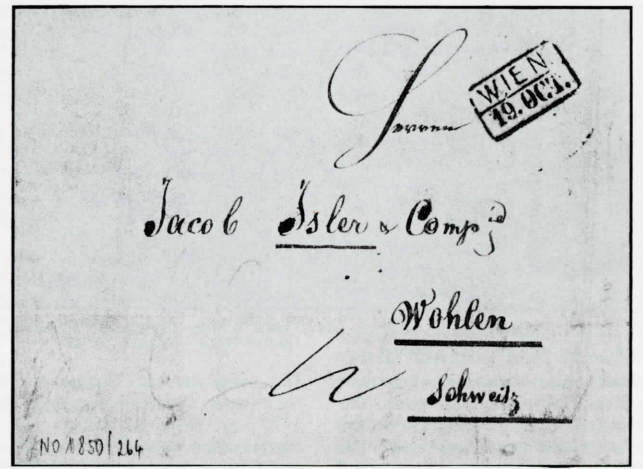 WIEN
19. OCT.
Herren
Jacob Isler & Comp
Wohlen
Schweitz
NO 1850/264